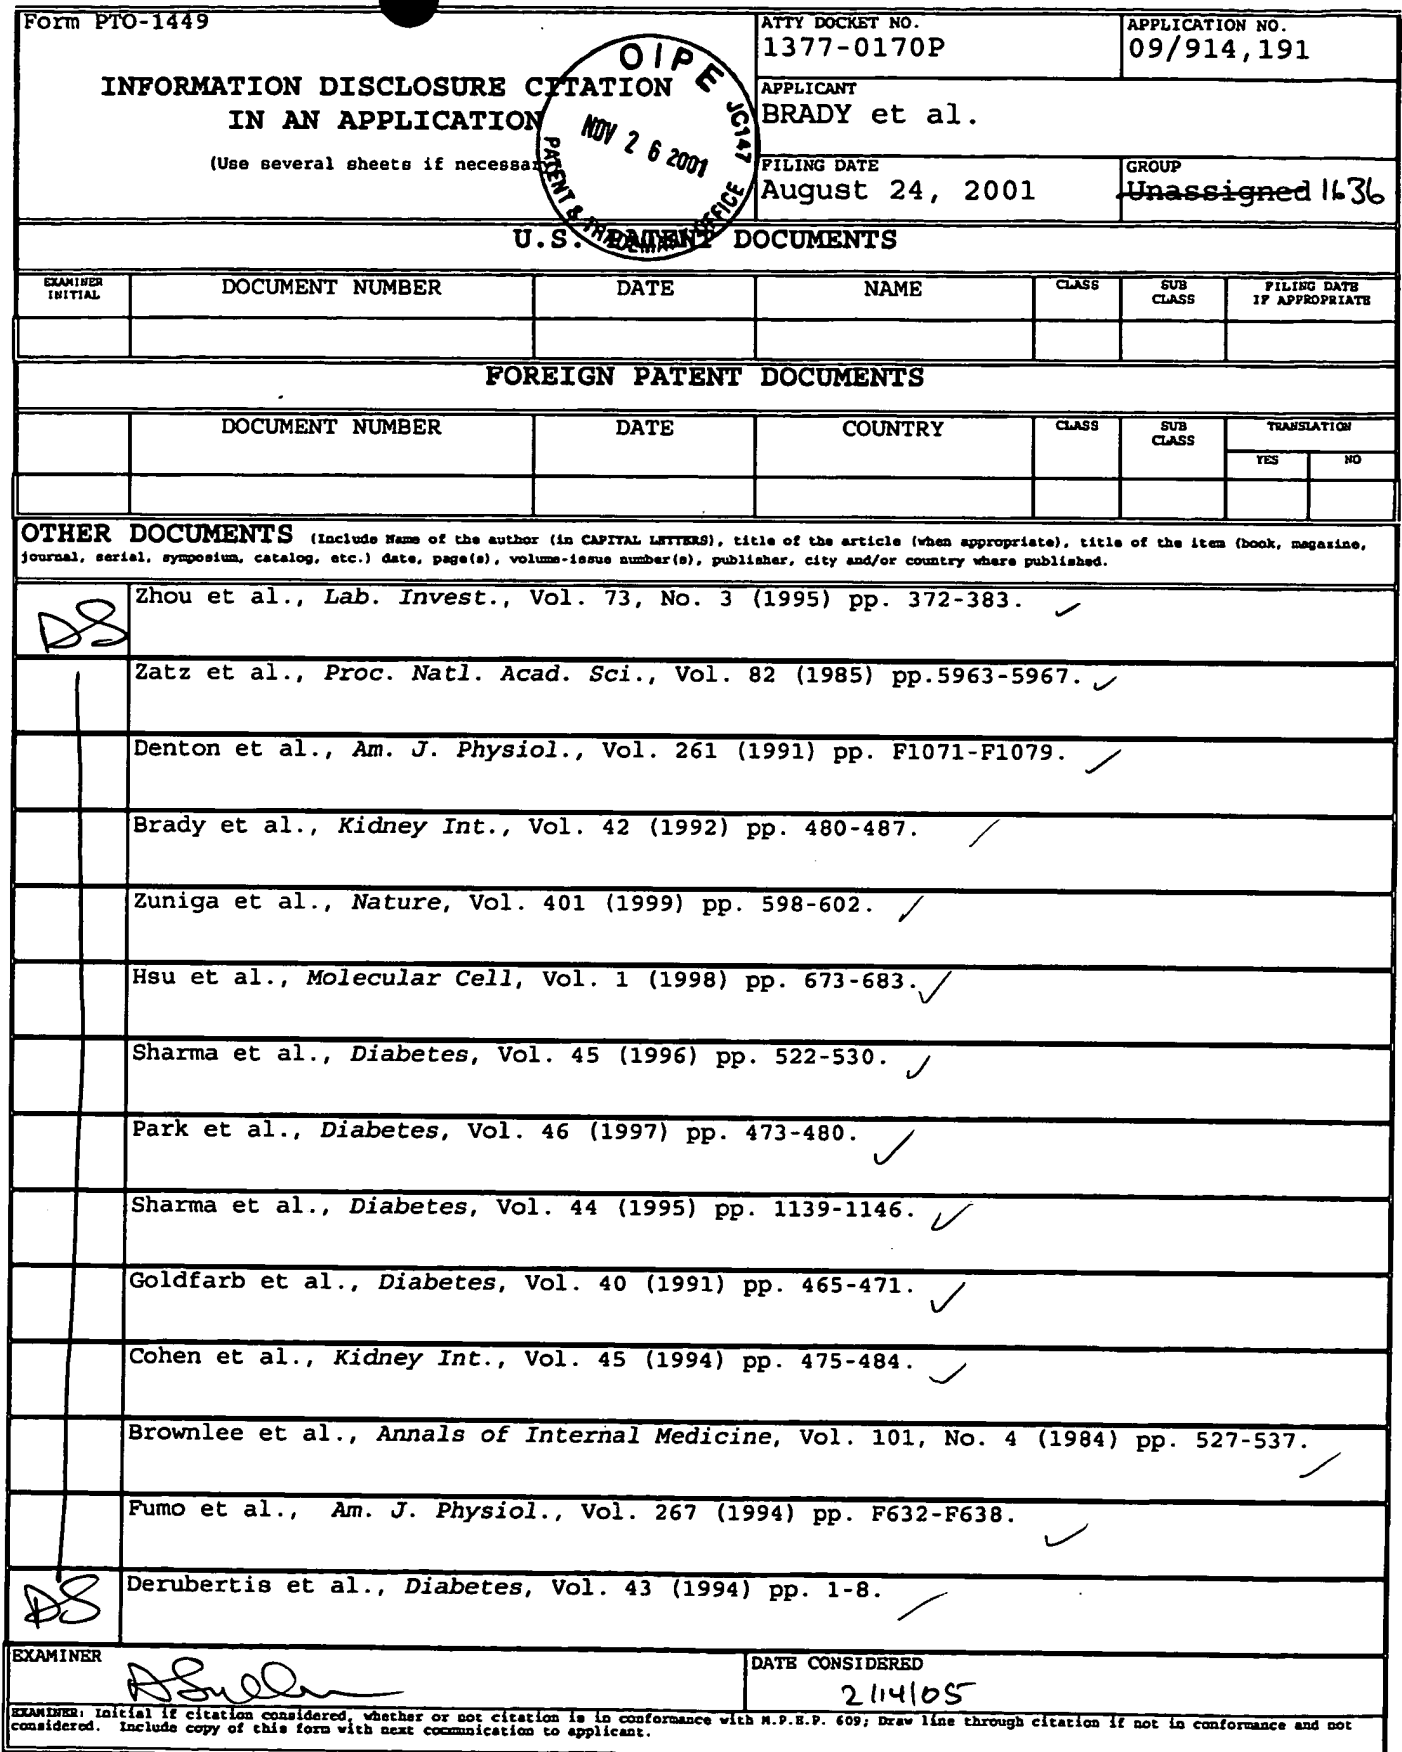 Form PTO-1449
INFORMATION DISCLOSURE CITATION
IN AN APPLICATION
(Use several sheets if necessary)
ATTY DOCKET NO.
1377-0170P
APPLICATION NO.
09/914,191
APPLICANT
BRADY et al.
FILING DATE
August 24, 2001
GROUP
Unassigned 1636
OIPE JC147
NOV 26 2001
PATENT & TRADEMARK OFFICE
U.S. PATENT DOCUMENTS
EXAMINER INITIAL
DOCUMENT NUMBER
DATE
NAME
CLASS
SUB CLASS
FILING DATE IF APPROPRIATE
FOREIGN PATENT DOCUMENTS
DOCUMENT NUMBER
DATE
COUNTRY
CLASS
SUB CLASS
TRANSLATION
YES
NO
OTHER DOCUMENTS (Include Name of the author (in CAPITAL LETTERS), title of the article (when appropriate), title of the item (book, magazine,
journal, serial, symposium, catalog, etc.) date, page(s), volume-issue number(s), publisher, city and/or country where published.
DS
Zhou et al., Lab. Invest., Vol. 73, No. 3 (1995) pp. 372-383.
Zatz et al., Proc. Natl. Acad. Sci., Vol. 82 (1985) pp.5963-5967.
Denton et al., Am. J. Physiol., Vol. 261 (1991) pp. F1071-F1079.
Brady et al., Kidney Int., Vol. 42 (1992) pp. 480-487.
Zuniga et al., Nature, Vol. 401 (1999) pp. 598-602.
Hsu et al., Molecular Cell, Vol. 1 (1998) pp. 673-683.
Sharma et al., Diabetes, Vol. 45 (1996) pp. 522-530.
Park et al., Diabetes, Vol. 46 (1997) pp. 473-480.
Sharma et al., Diabetes, Vol. 44 (1995) pp. 1139-1146.
Goldfarb et al., Diabetes, Vol. 40 (1991) pp. 465-471.
Cohen et al., Kidney Int., Vol. 45 (1994) pp. 475-484.
Brownlee et al., Annals of Internal Medicine, Vol. 101, No. 4 (1984) pp. 527-537.
Fumo et al., Am. J. Physiol., Vol. 267 (1994) pp. F632-F638.
DS
Derubertis et al., Diabetes, Vol. 43 (1994) pp. 1-8.
EXAMINER
DATE CONSIDERED
2/14/05
EXAMINER: Initial if citation considered, whether or not citation is in conformance with M.P.E.P. 609; Draw line through citation if not in conformance and not
considered. Include copy of this form with next communication to applicant.